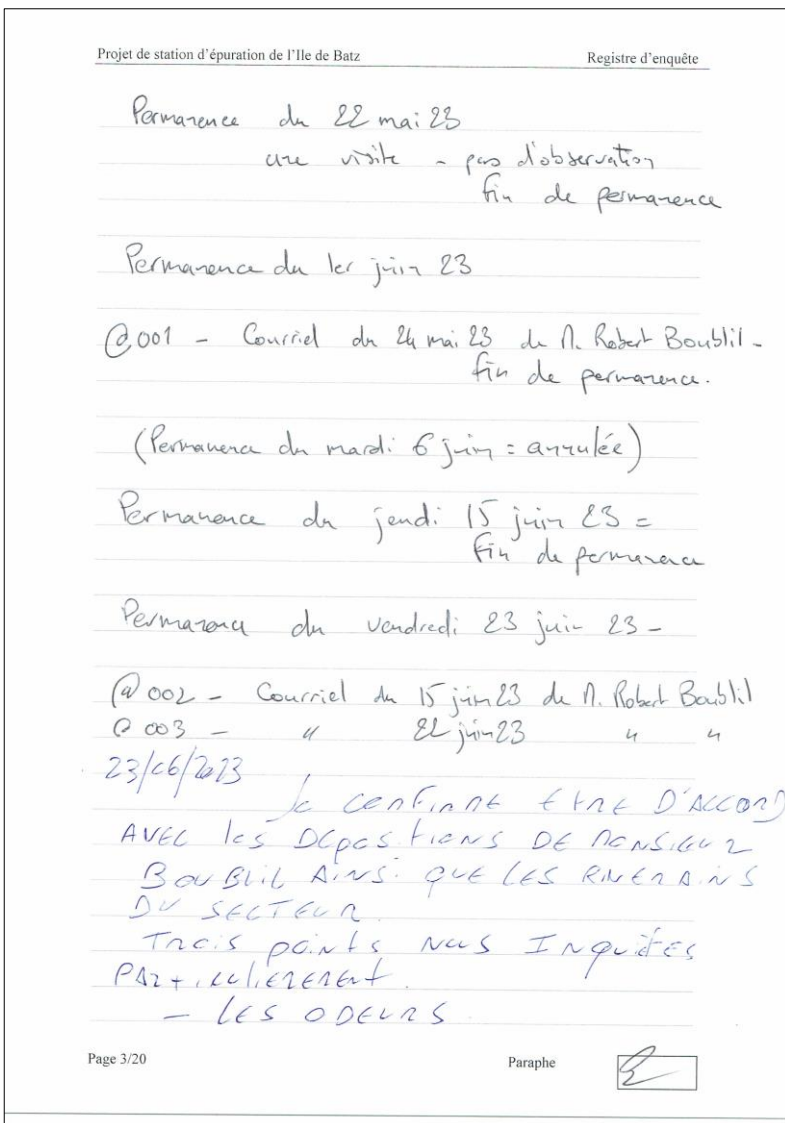 Projet de station d'épuration de l'Ile de Batz Registre d'enquête
Permanence du 22 mai 23
une visite - pas d'observation
fin de permanence
Permanence du 1er juin 23
@001 - Courriel du 24 mai 23 de M. Robert Boublil -
fin de permanence.
(Permanence du mardi 6 juin = annulée)
Permanence du jeudi 15 juin 23 =
fin de permanence
Permanence du vendredi 23 juin 23 -
@002 - Courriel du 15 juin 23 de M. Robert Boublil
@003 - " 22 juin 23 " "
23/06/2023
Je CONFIRME ETRE D'ACCORD
AVEC les DEPOSITIONS DE MONSIEUR
BOUBLIL AINSI QUE LES RIVERAINS
DU SECTEUR.
TROIS POINTS NOUS INQUIÈTES
PARTICULIEREMENT.
- LES ODEURS.
Page 3/20 Paraphe